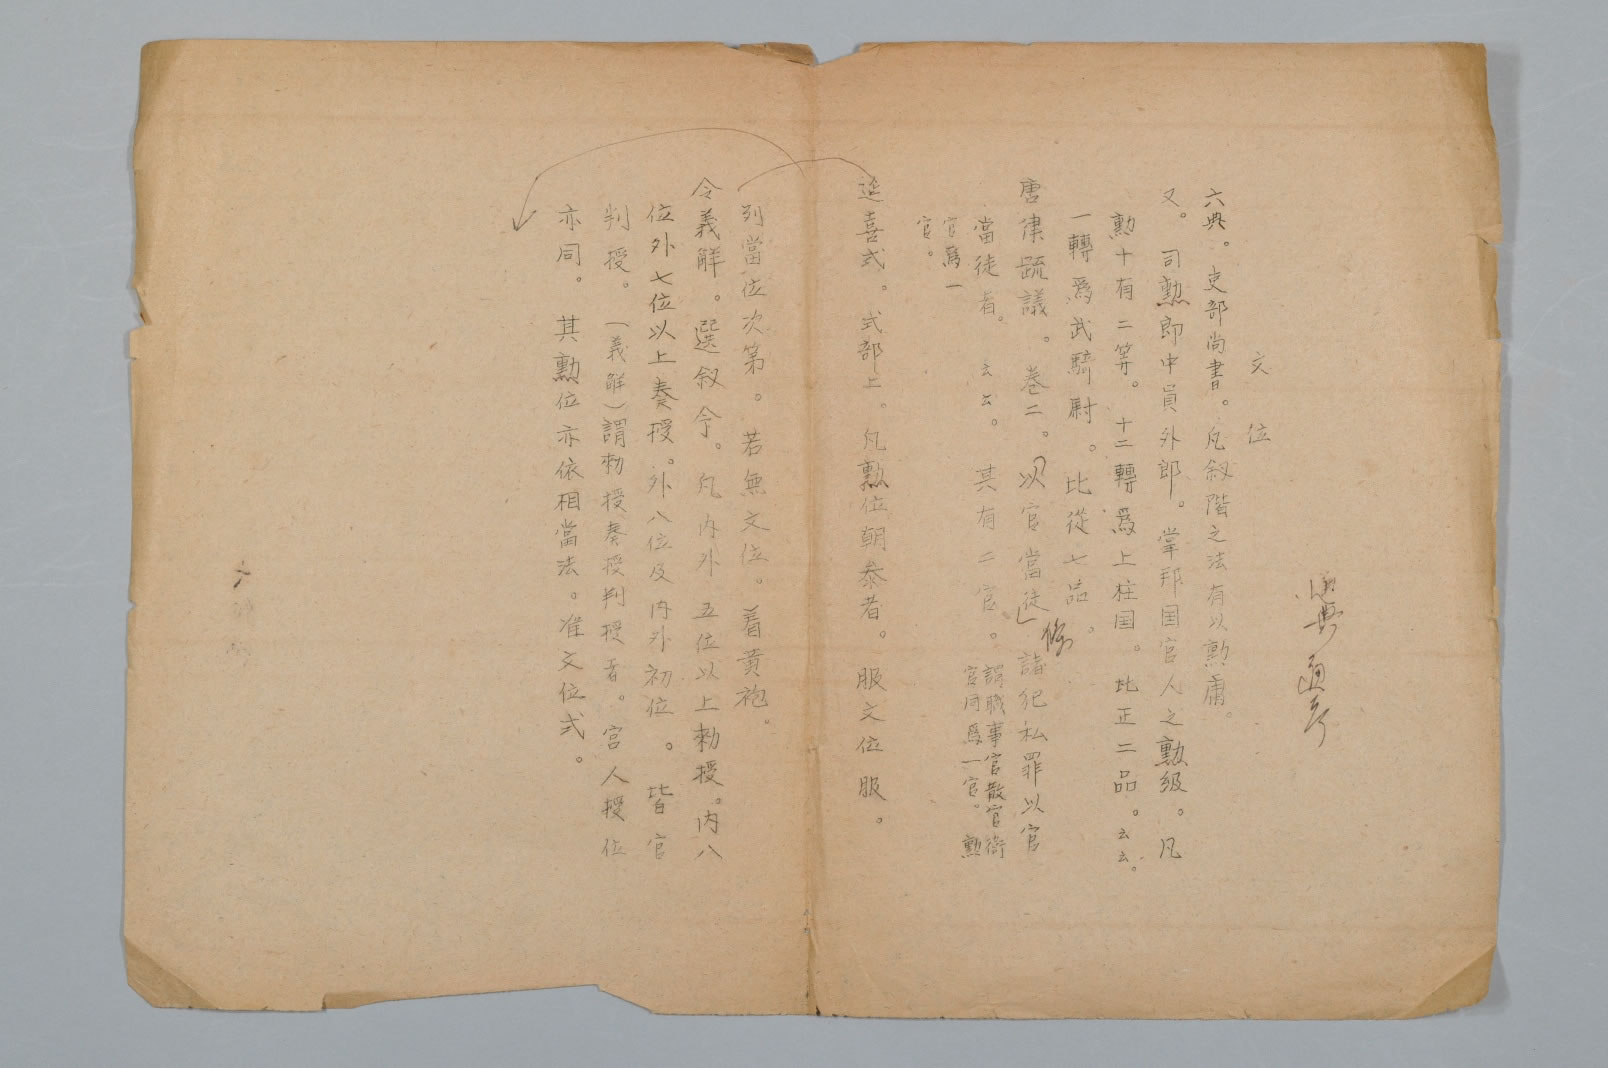 文位
六典。吏部尚書。凡叙階之法有以勲庸。
又。司勲郎中員外郎。掌邦国官人之勲級。凡
勲十有二等。十二轉爲上柱国。比正二品。云云。
一轉爲武騎尉。比從七品。
唐律疏議。巻二。以官當徒條 諸犯私罪以官
當徒者。云云。其有二官。謂職事官散官衛
官同爲一官。勲
官爲一
官。
延喜式。式部上。凡勲位朝参者。服文位服。
列當位次第。若無文位。着黄袍。
令義解。選叙令。凡内外五位以上勅授。内八
位外七位以上奏授。外八位及内外初位。皆官
判授。(義解)謂勅授奏授判授者。宮人授位
亦同。其勲位亦依相當法。准文位式。